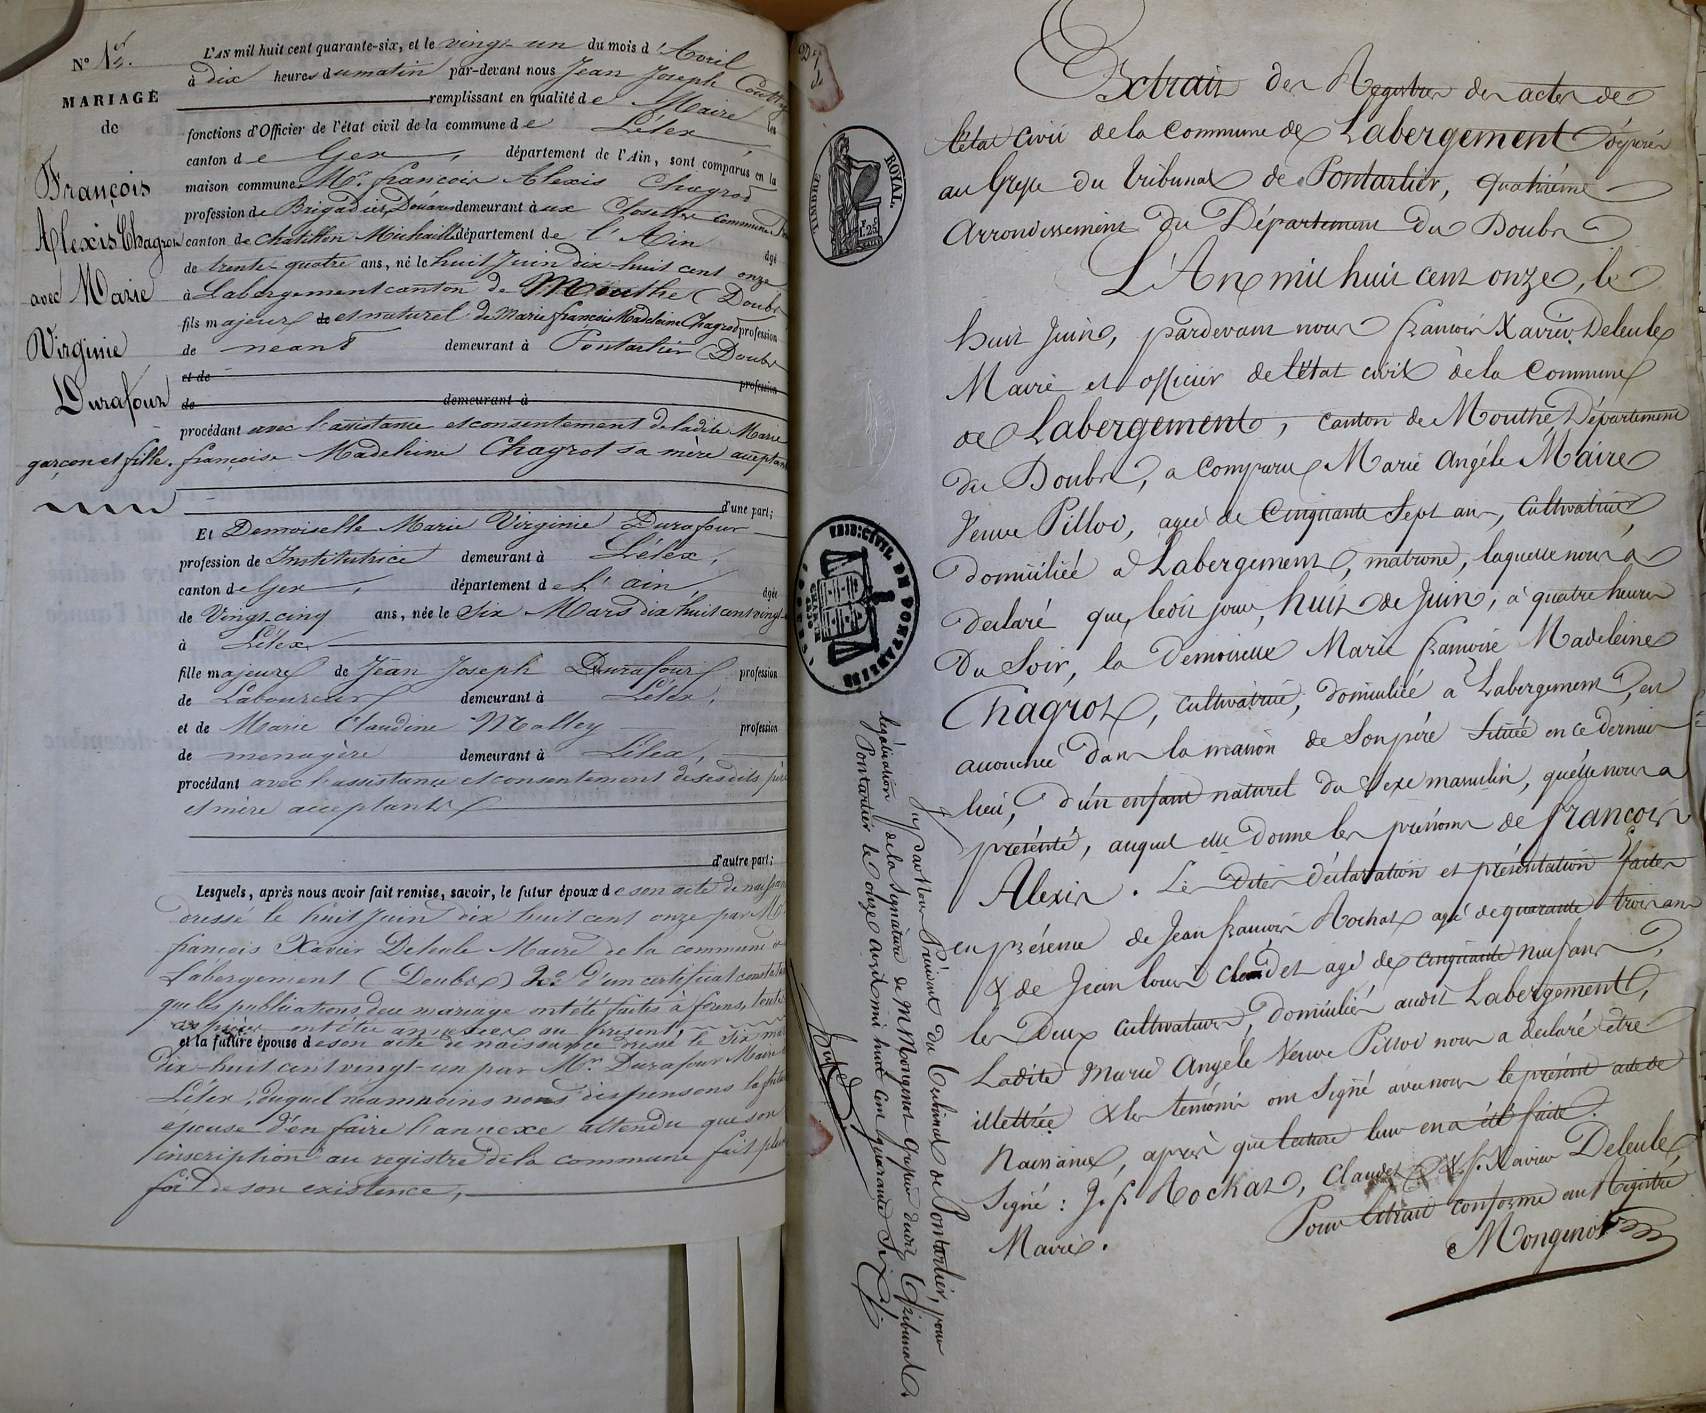 N° 14.
MARIAGE
de
François
Alexis Chagrot
avec Marie
Virginie
Durafour
garçon et fille.
L'AN mil huit cent quarante-six, et le vingt un du mois d'Avril
à dix heures du matin par-devant nous Jean Joseph
remplissant en qualité de Maire les
fonctions d'Officier de l'état civil de la commune de Lélex
canton de Gex, département de l'Ain, sont comparus en la
maison commune Mr. françois Alexis Chagrot
profession de Brigadier Douanes demeurant à aux commune
canton de Chatillon Michaille département de l'Ain âgé
de trente-quatre ans, né le huit Juin dix-huit cent onze
à Labergement canton de Mouthe (Doubs
fils majeur de et naturel de Marie françoise Madeleine Chagrot profession
de neant demeurant à Pontarlier (Doubs
et de profession
de demeurant à
procédant avec l'assistance et consentement de ladite Marie
françoise Madeleine Chagrot sa mère acceptant
d'une part;
Et Demoiselle Marie Virginie Durafour
profession de Institutrice demeurant à Lélex,
canton de Gex, département de l'ain âgée
de Vingt-cinq ans, née le Six Mars dix huit cent vingt
à Lélex
fille majeure de Jean Joseph Durafour profession
de Laboureur demeurant à Lélex,
et de Marie Claudine Molley profession
de menagère demeurant à Lélex,
procédant avec l'assistance et consentement de ses dits père
et mère acceptants
d'autre part;
Lesquels, après nous avoir fait remise, savoir, le futur époux de son acte de naissance
dressé le huit Juin dix huit cent onze par Mr
françois Xavier Deleule Maire de la commune de
Labergement (Doubs) 2° d'un certificat constatant
que les publications de ce mariage ont été faites à
ont été annexées au présent,
et la future épouse de son acte de naissance dressé le six mars
dix-huit cent vingt-un par Mr. Durafour Maire
Lélex, duquel néanmoins nous dispensons la future
épouse d'en faire l'annexe attendu que son
inscription au registre de la commune fait pleine
foi de son existence,
TIMBRE ROYAL.
1F.25c
TRIB: CIVIL DE PONTARLIER
CHARTE
1830
Extrait des Registres des actes de
l'état civil de la commune de Labergement déposés
au Greffe du tribunal de Pontarlier, quatrième
Arrondissement du Département du Doubs
L'An mil huit cent onze, le
huit Juin, pardevant nous françois Xavier Deleule
Maire et officier de l'état civil de la commune
de Labergement, canton de Mouthe, Département
du Doubs, a comparu Marie Angéle Maire
Veuve Pillod, agée de cinquante Sept ans, cultivatrice
domiciliée à Labergement, matrone, laquelle nous a
declaré que ledit jour, huit de Juin, à quatre heures
du Soir, la demoiselle Marie françoise Madeleine
Chagrot, cultivatrice, domiciliée à Labergement, est
accouchée dans la maison de Son père Située en ce dernier
lieu, d'un enfant naturel du Sexe masculin, qu'elle nous a
présenté, auquel elle donne les prénoms de françois
Alexis. Les dites déclaration et présentation faites
en présence de Jean françois Rochat agé de quarante trois ans
& de Jean Louis Claudet agé de cinquante neuf ans,
les deux cultivateurs, domiciliés audit Labergement,
Ladite Marie Angéle Veuve Pillod nous a déclaré être
illettrée & les temoins ont Signé avec nous le présent acte de
Naissance, après que lecture leur en a été faite.
Signé: J. f. Rochat, Claudet & f. Xavier Deleule,
Maire.
Pour extrait conforme au Registre
Mongenot
Vu par Nous Président du Tribunal de Pontarlier, pour
légalisation de la Signature de M Mongenot Greffier dudit Tribunal
Pontarlier le onze avril mil huit cent quarante Six